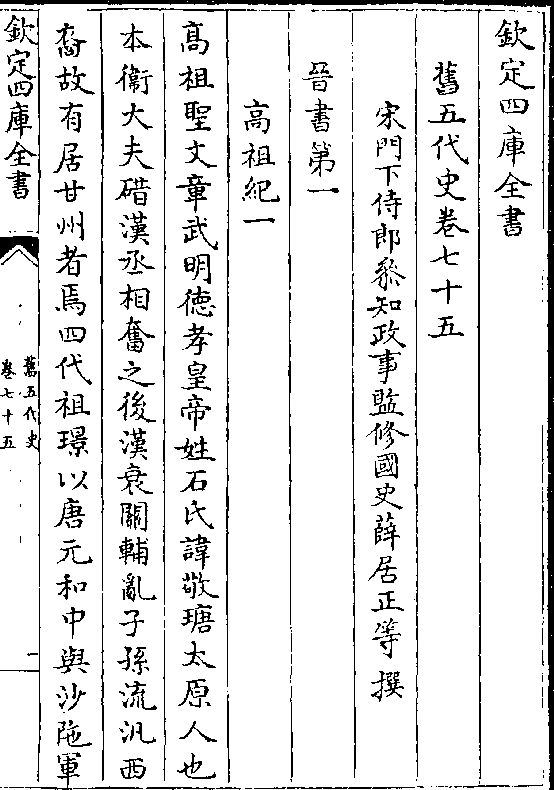 欽定四庫全書
舊五代史卷七十五
宋門下侍郎叅知政事監修國史薛居正等撰
晉書第一
高祖紀一
高祖聖文章武明德孝皇帝姓石氏諱敬瑭太原人也
本衛大夫碏漢丞相奮之後漢衰關輔亂子孫流汎西
裔故有居甘州者焉四代祖璟以唐元和中與沙陁軍
欽定四庫全書
舊五代史
卷七十五
一